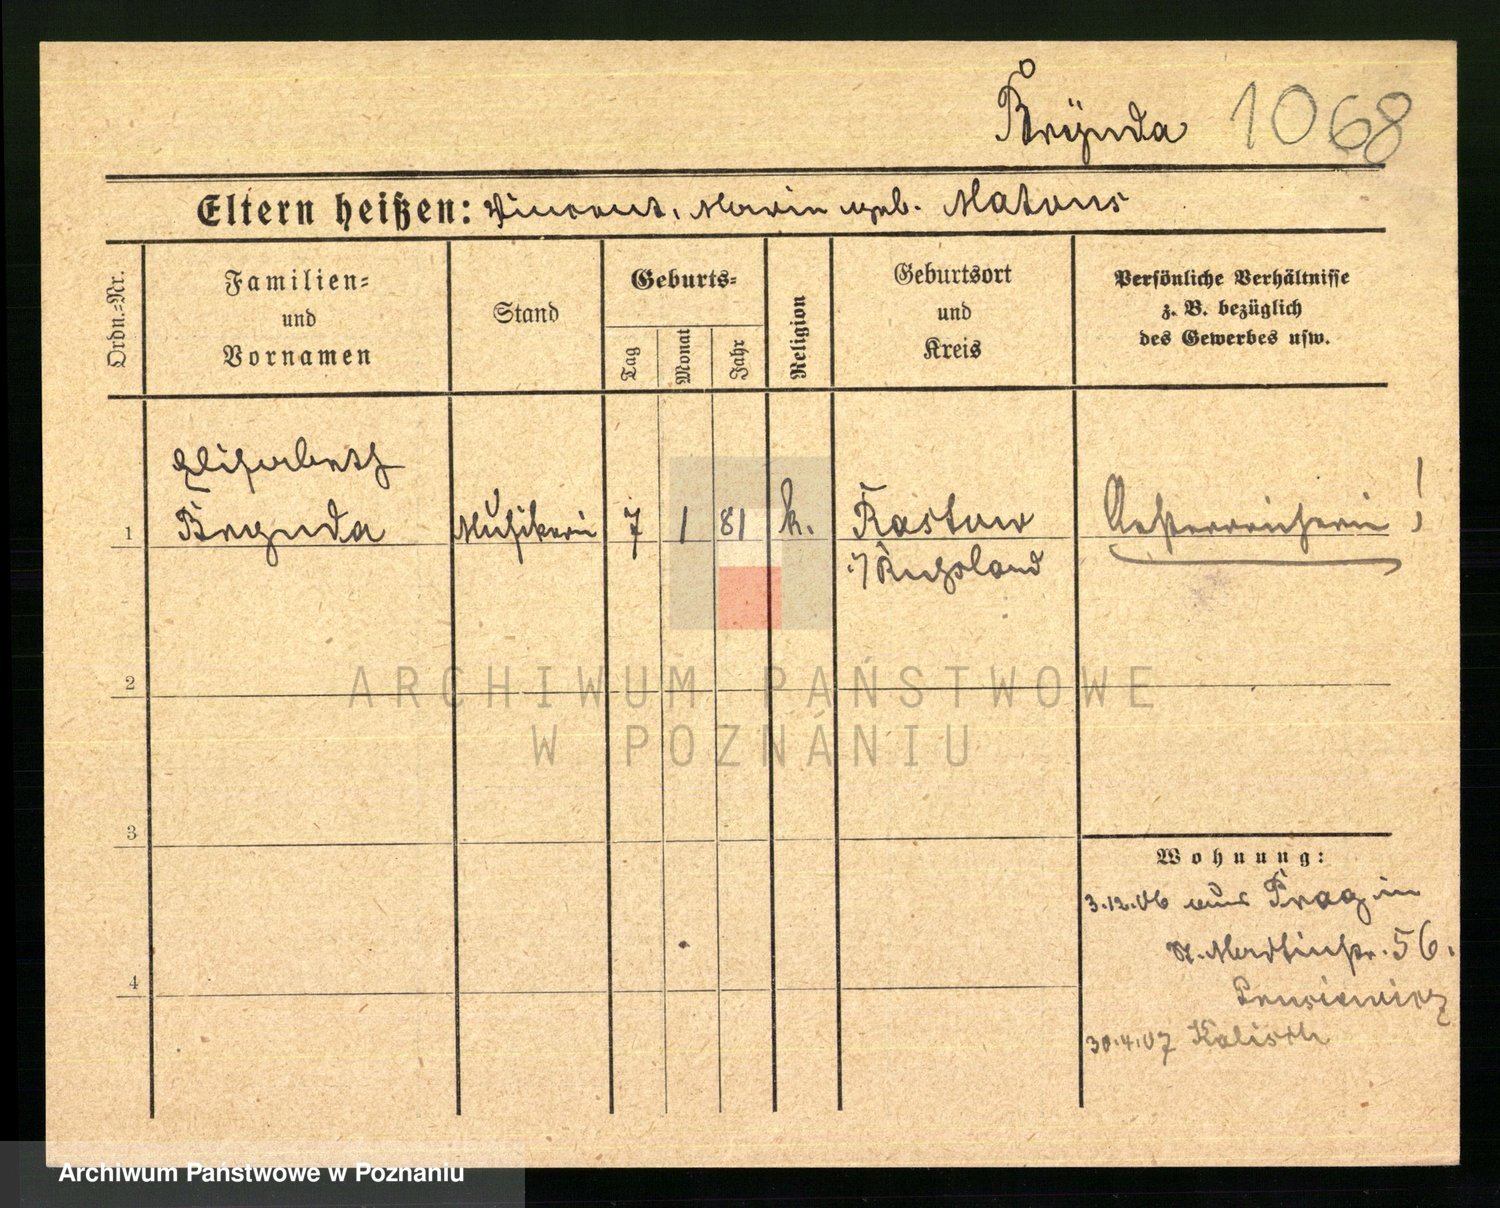 Brÿnda 1068
Eltern heißen: Vincent, Marie geb. Matous
Ordn.-Nr.
Familien-
und
Vornamen
Stand
Geburts-
Tag
Monat
Jahr
Religion
Geburtsort
und
Kreis
Persönliche Verhältnisse
z. B. bezüglich
des Gewerbes usw.
Elisabeth
1 Brynda Musikerin 7 1 81 k. Rastow Oesterreicherin!
i/Russland
2
ARCHIWUM PAŃSTWOWE
W POZNANIU
3
Wohnung:
3.12.06 aus Prag in
St. Martinstr. 56.
4
30.4.07 Kalisch
Archiwum Państwowe w Poznaniu